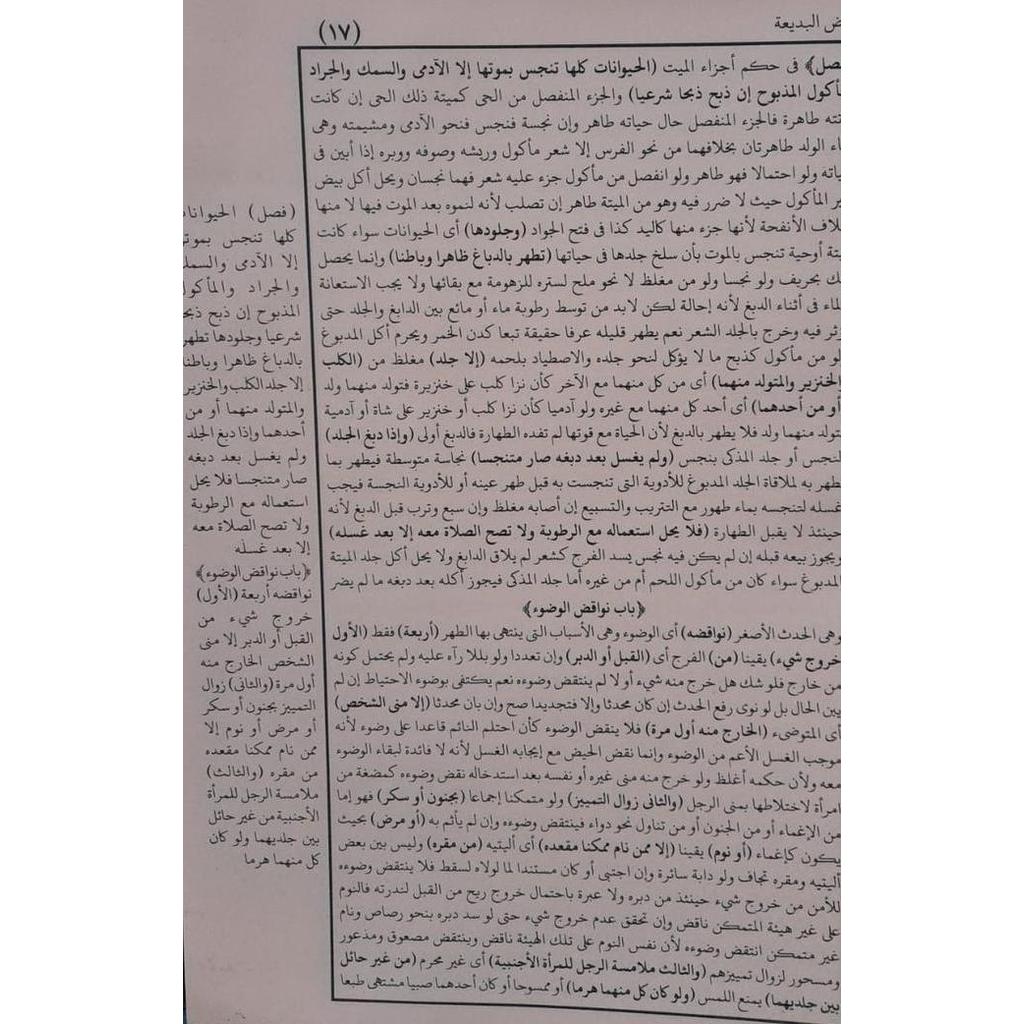 ض البديعة
(١٧)
فصل﴾ فى حكم أجزاء الميت (الحيوانات كلها تنجس بموتها إلا الآدمى والسمك والجراد
أكول المذبوح إن ذبح ذبحا شرعيا) والجزء المنفصل من الحى كميتة ذلك الحى إن كانت
تته طاهرة فالجزء المنفصل حال حياته طاهر وإن نجسة فنجس فنحو الآدمى ومشيمته وهى
اء الولد طاهرتان بخلافهما من نحو الفرس إلا شعر مأكول وريشه وصوفه ووبره إذا أبين فى
ياته ولو احتمالا فهو طاهر ولو انفصل من مأكول جزء عليه شعر فهما نجسان ويحل أكل بيض
ير المأكول حيث لا ضرر فيه وهو من الميتة طاهر إن تصلب لأنه لنموه بعد الموت فيها لا منها
لاف الأنفحة لأنها جزء منها كاليد كذا فى فتح الجواد (وجلودها) أى الحيوانات سواء كانت
يتة أوحية تنجس بالموت بأن سلخ جلدها فى حياتها (تطهر بالدباغ ظاهرا وباطنا) وإنما يحصل
ك بحريف ولو نجسا ولو من مغلظ لا نحو ملح لستره للزهومة مع بقائها ولا يجب الاستعانة
لماء فى أثناء الدبغ لأنه إحالة لكن لابد من توسط رطوبة ماء أو مائع بين الدابغ والجلد حتى
ؤثر فيه وخرج بالجلد الشعر نعم يطهر قليله عرفا حقيقة تبعا كدن الخمر ويحرم أكل المدبوغ
لو من مأكول كذبح ما لا يؤكل لنحو جلده والاصطياد بلحمه (إلا جلد) مغلظ من (الكلب
الخنزير والمتولد منهما) أى من كل منهما مع الآخر كأن نزا كلب على خنزيرة فتولد منهما ولد
أو من أحدهما) أى أحد كل منهما مع غيره ولو آدميا كأن نزا كلب أو خنزير على شاة أو آدمية
تولد منهما ولد فلا يطهر بالدبغ لأن الحياة مع قوتها لم تفده الطهارة فالدبغ أولى (وإذا دبغ الجلد)
لنجس أو جلد المذكى بنجس (ولم يغسل بعد دبغه صار متنجسا) نجاسة متوسطة فيطهر بما
طهر به لملاقاة الجلد المدبوغ للأدوية التى تنجست به قبل طهر عينه أو للأدوية النجسة فيجب
غسله لتنجسه بماء طهور مع التتريب والتسبيع إن أصابه مغلظ وإن سبع وترب قبل الدبغ لأنه
حينئذ لا يقبل الطهارة (فلا يحل استعماله مع الرطوبة ولا تصح الصلاة معه إلا بعد غسله)
ويجوز بيعه قبله إن لم يكن فيه نجس يسد الفرج كشعر لم يلاق الدابغ ولا يحل أكل جلد الميتة
المدبوغ سواء كان من مأكول اللحم أم من غيره أما جلد المذكى فيجوز أكله بعد دبغه ما لم يضر
﴿باب نواقض الوضوء﴾
وهى الحدث الأصغر (نواقضه) أى الوضوء وهى الأسباب التى ينتهى بها الطهر (أربعة) فقط (الأول
خروج شىء) يقينا (من) الفرج أى (القبل أو الدبر) وإن تعددا ولو بللا رآه عليه ولم يحتمل كونه
من خارج فلو شك هل خرج منه شىء أو لا لم ينتقض وضوءه نعم يكتفى بوضوء الاحتياط إن لم
يبن الحال بل لو نوى رفع الحدث إن كان محدثا وإلا فتجديدا صح وإن بان محدثا (إلا منى الشخص)
أى المتوضىء (الخارج منه أول مرة) فلا ينقض الوضوء كأن احتلم النائم قاعدا على وضوء لأنه
موجب الغسل الأعم من الوضوء وإنما نقض الحيض مع إيجابه الغسل لأنه لا فائدة لبقاء الوضوء
معه ولأن حكمه أغلظ ولو خرج منه منى غيره أو نفسه بعد استدخاله نقض وضوءه كمضغة من
امرأة لاختلاطها بمنى الرجل (والثانى زوال التمييز) ولو متمكنا إجماعا (بجنون أو سكر) فهو إما
من الإغماء أو من الجنون أو من تناول نحو دواء فينتقض وضوءه وإن لم يأثم به (أو مرض) بحيث
يكون كإغماء (أو نوم) يقينا (إلا ممن نام ممكنا مقعده) أى أليتيه (من مقره) وليس بين بعض
أليتيه ومقره تجاف ولو دابة سائرة وإن اجتبى أو كان مستندا لما لولاه لسقط فلا ينتقض وضوءه
للأمن من خروج شىء حينئذ من دبره ولا عبرة باحتمال خروج ريح من القبل لندرته فالنوم
على غير هيئة المتمكن ناقض وإن تحقق عدم خروج شىء حتى لو سد دبره بنحو رصاص ونام
غير متمكن انتقض وضوءه لأن نفس النوم على تلك الهيئة ناقض وينتقض مصعوق ومذعور
ومسحور لزوال تمييزهم (والثالث ملامسة الرجل للمرأة الأجنبية) أى غير محرم (من غير حائل
بين جلديهما) يمنع اللمس (ولو كان كل منهما هرما) أو ممسوحا أو كان أحدهما صبيا مشتهى طبعا
(فصل) الحيوانات
كلها تنجس بموتها
إلا الآدمى والسمك
والجراد والمأكول
المذبوح إن ذبح ذبحا
شرعيا وجلودها تطهر
بالدباغ ظاهرا وباطنا
إلا جلد الكلب والخنزير
والمتولد منهما أو من
أحدهما وإذا دبغ الجلد
ولم يغسل بعد دبغه
صار متنجسا فلا يحل
استعماله مع الرطوبة
ولا تصح الصلاة معه
إلا بعد غسله
﴿باب نواقض الوضوء﴾
نواقضه أربعة (الأول)
خروج شيء من
القبل أو الدبر إلا منى
الشخص الخارج منه
أول مرة (والثانى) زوال
التمييز بجنون أو سكر
أو مرض أو نوم إلا
ممن نام ممكنا مقعده
من مقره (والثالث)
ملامسة الرجل للمرأة
الأجنبية من غير حائل
بين جلديهما ولو كان
كل منهما هرما